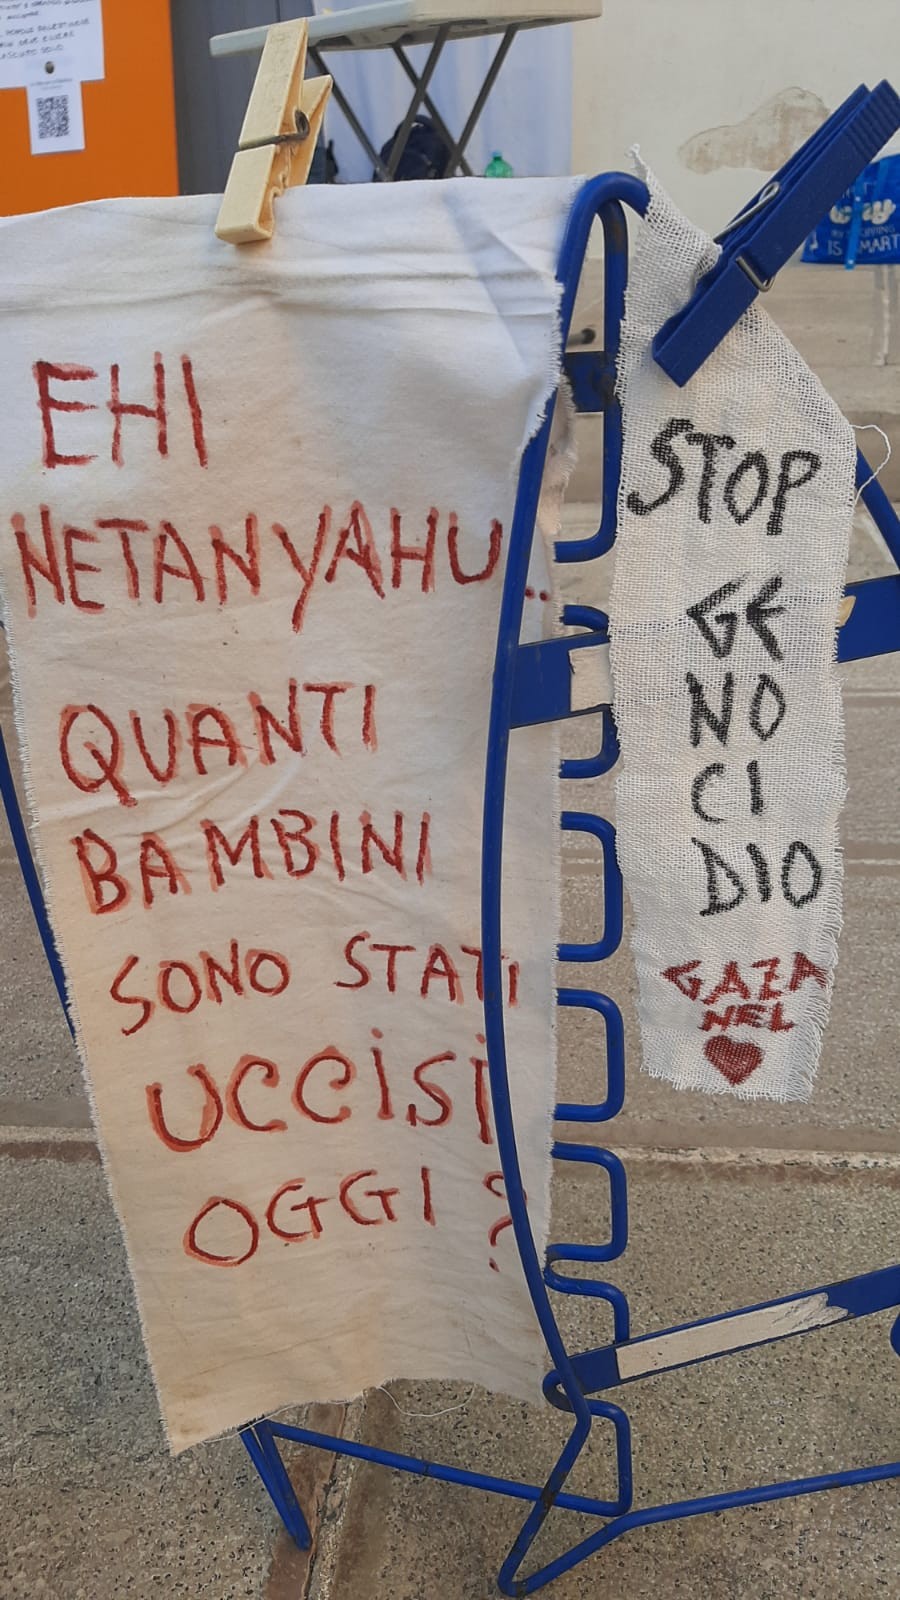 EHI
NETANYAHU..
QUANTI
BAMBINI
SONO STATI
UCCISI
OGGI?
STOP
GE
NO
CI
DIO
GAZA
NEL
IS SMART